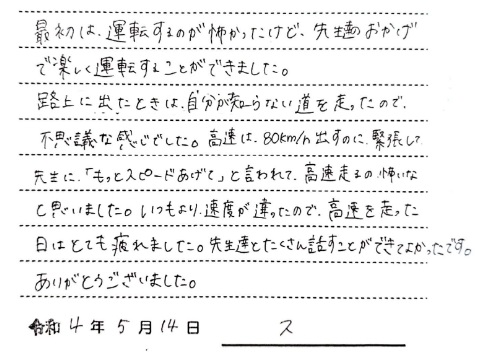 最初は、運転するのが怖かったけど、先生達のおかげ
で楽しく運転することができました。
路上に出たときは、自分が知らない道を走ったので、
不思議な感じでした。高速は、80km/h出すのに、緊張して
先生に、「もっとスピードあげて」と言われて、高速走るの怖いな
と思いました。いつもより、速度が違ったので、高速を走った
日はとても疲れました。先生達とたくさん話すことができてよかったです。
ありがとうございました。
令和4年5月14日 ス